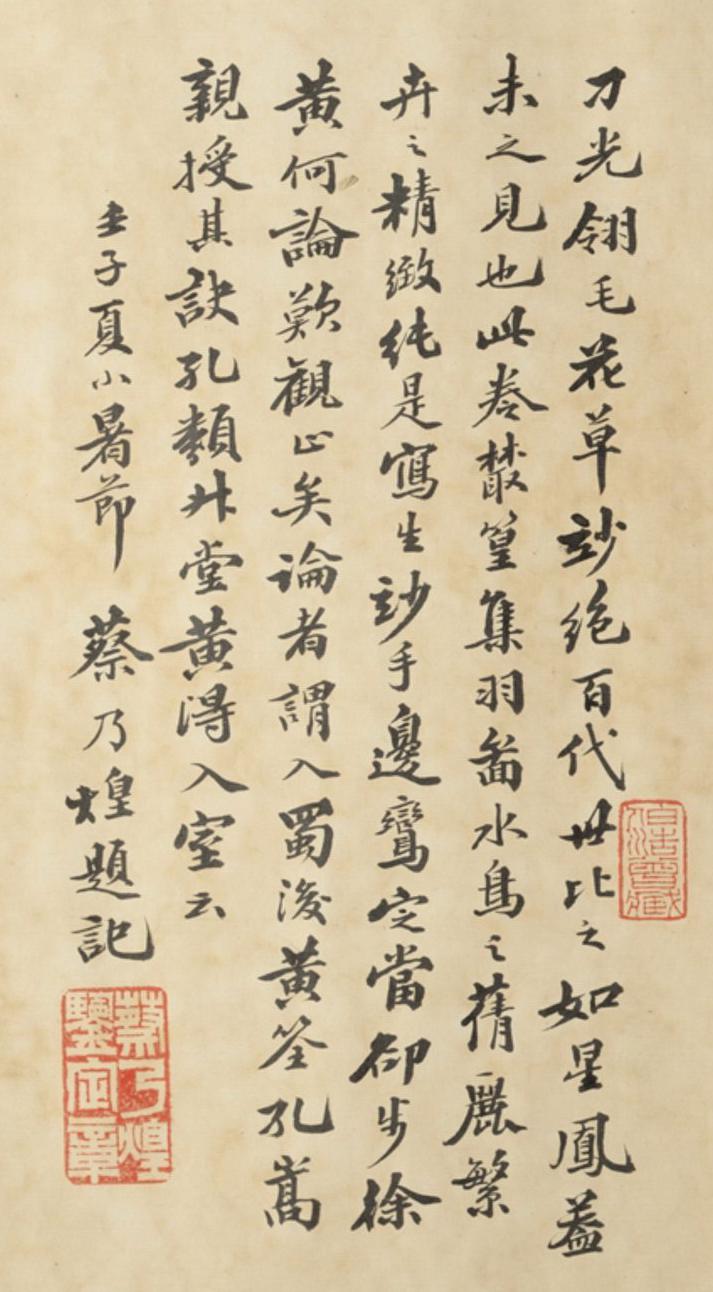 刀光翎毛花草玅絕百代世比之如星鳳蓋
未之見也此卷叢篁集羽啚水鳥之蒨麗繁
卉之精緻純是寫生玅手邊鸞定當卻步徐
黃何論歎觀止矣論者謂入蜀後黃筌孔嵩
親授其訣孔類升堂黃得入室云
壬子夏小暑節 蔡乃煌題記
蔡乃煌
鑒定章